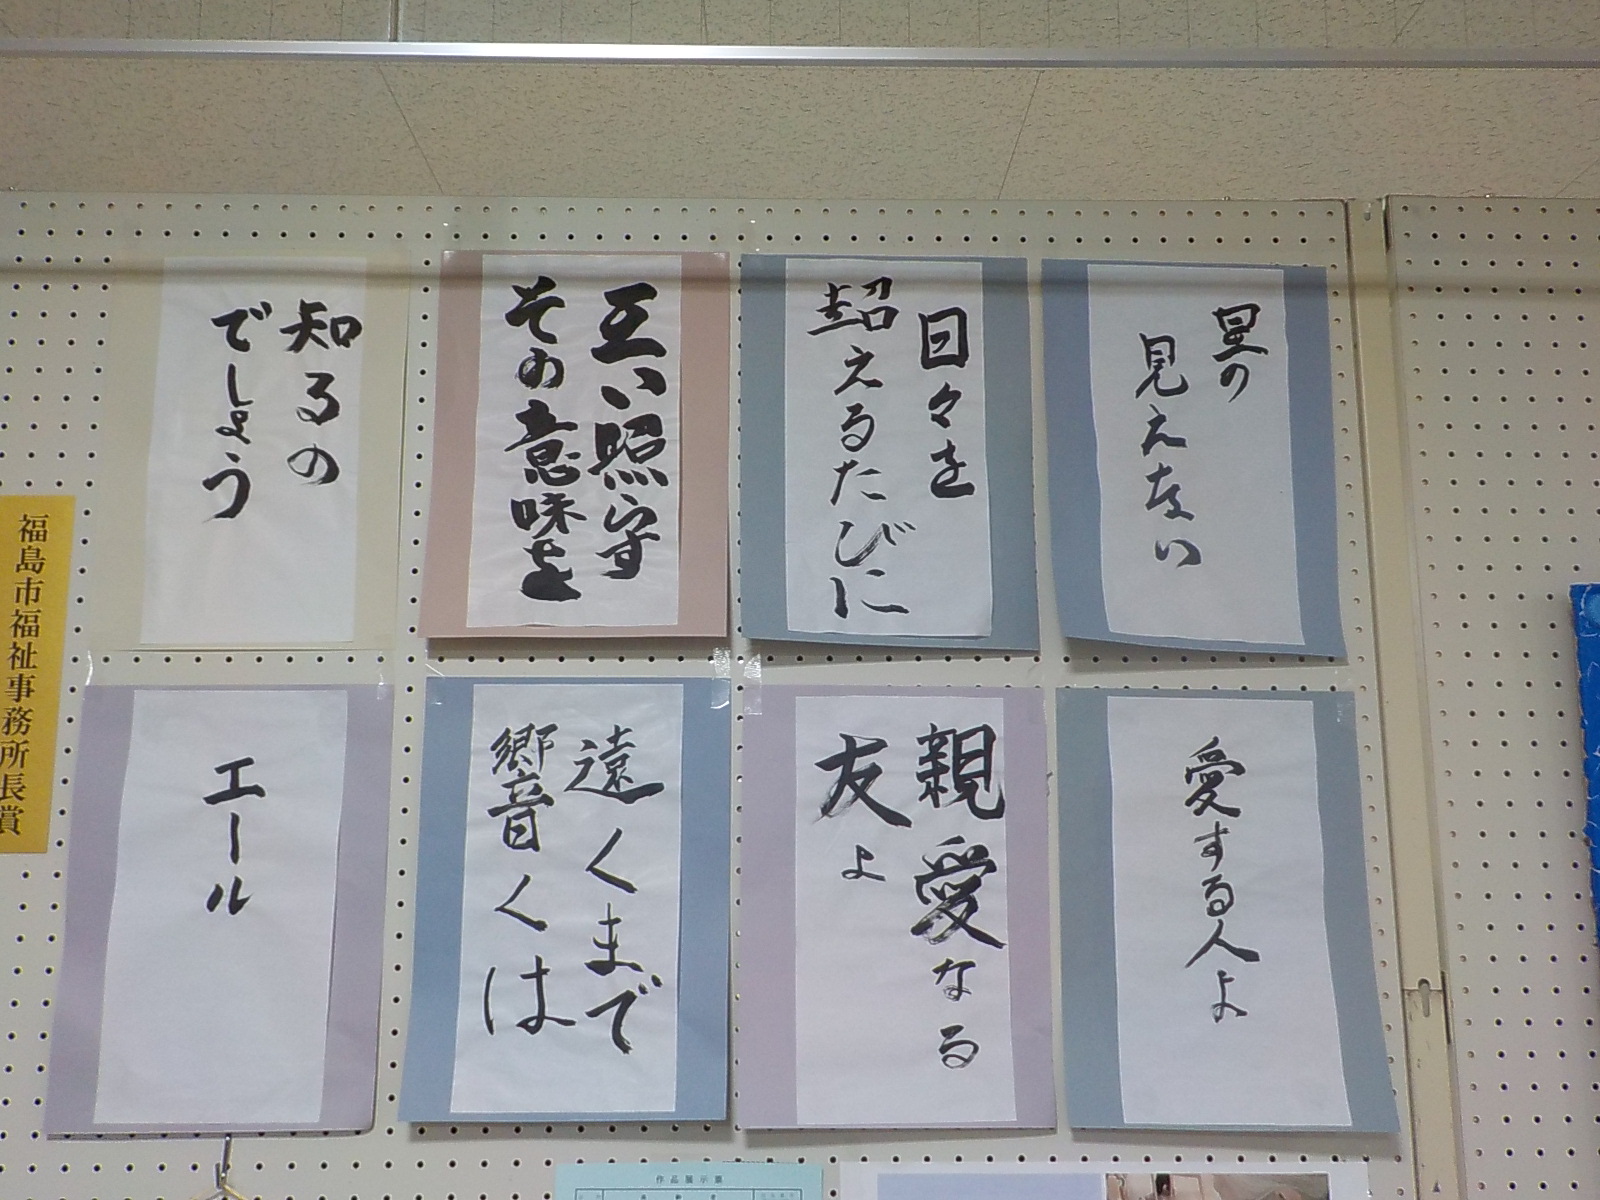 星の
見えない
日々を
超えるたびに
互い照らす
その意味を
知るの
でしょう
愛する人よ
親愛なる
友よ
遠くまで
響くは
エール
福島市福祉事務所長賞
作品展示票